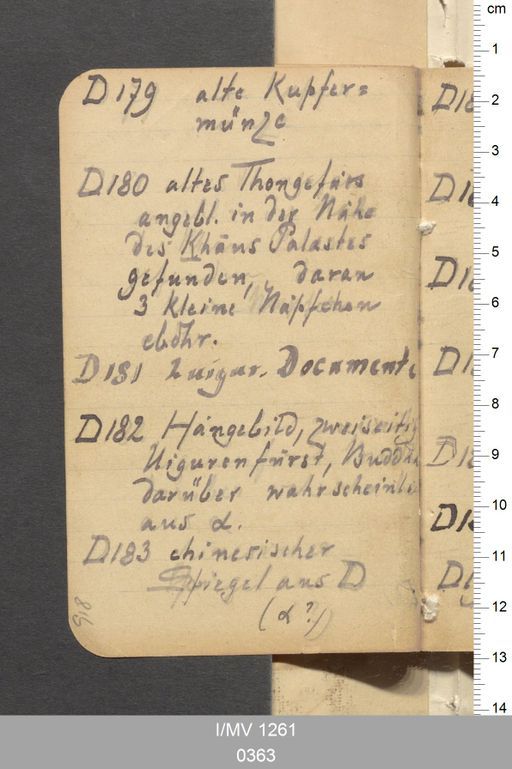 D179 alte Kupfer=
münze
D180 altes Thongefäss
angebl. in der Nähe
des Khâns Palastes
gefunden, daran
3 kleine Näpfchen
ebdhr.
D181 2 uigur. Documente
D182 Hängebild, zweiseitig
Uigurenfürst, Buddha
darüber wahrscheinl
aus α.
D183 chinesischer
Spiegel aus D
(α?)
cm
1
2
3
4
5
6
7
8
9
10
11
12
13
14
I/MV 1261
0363